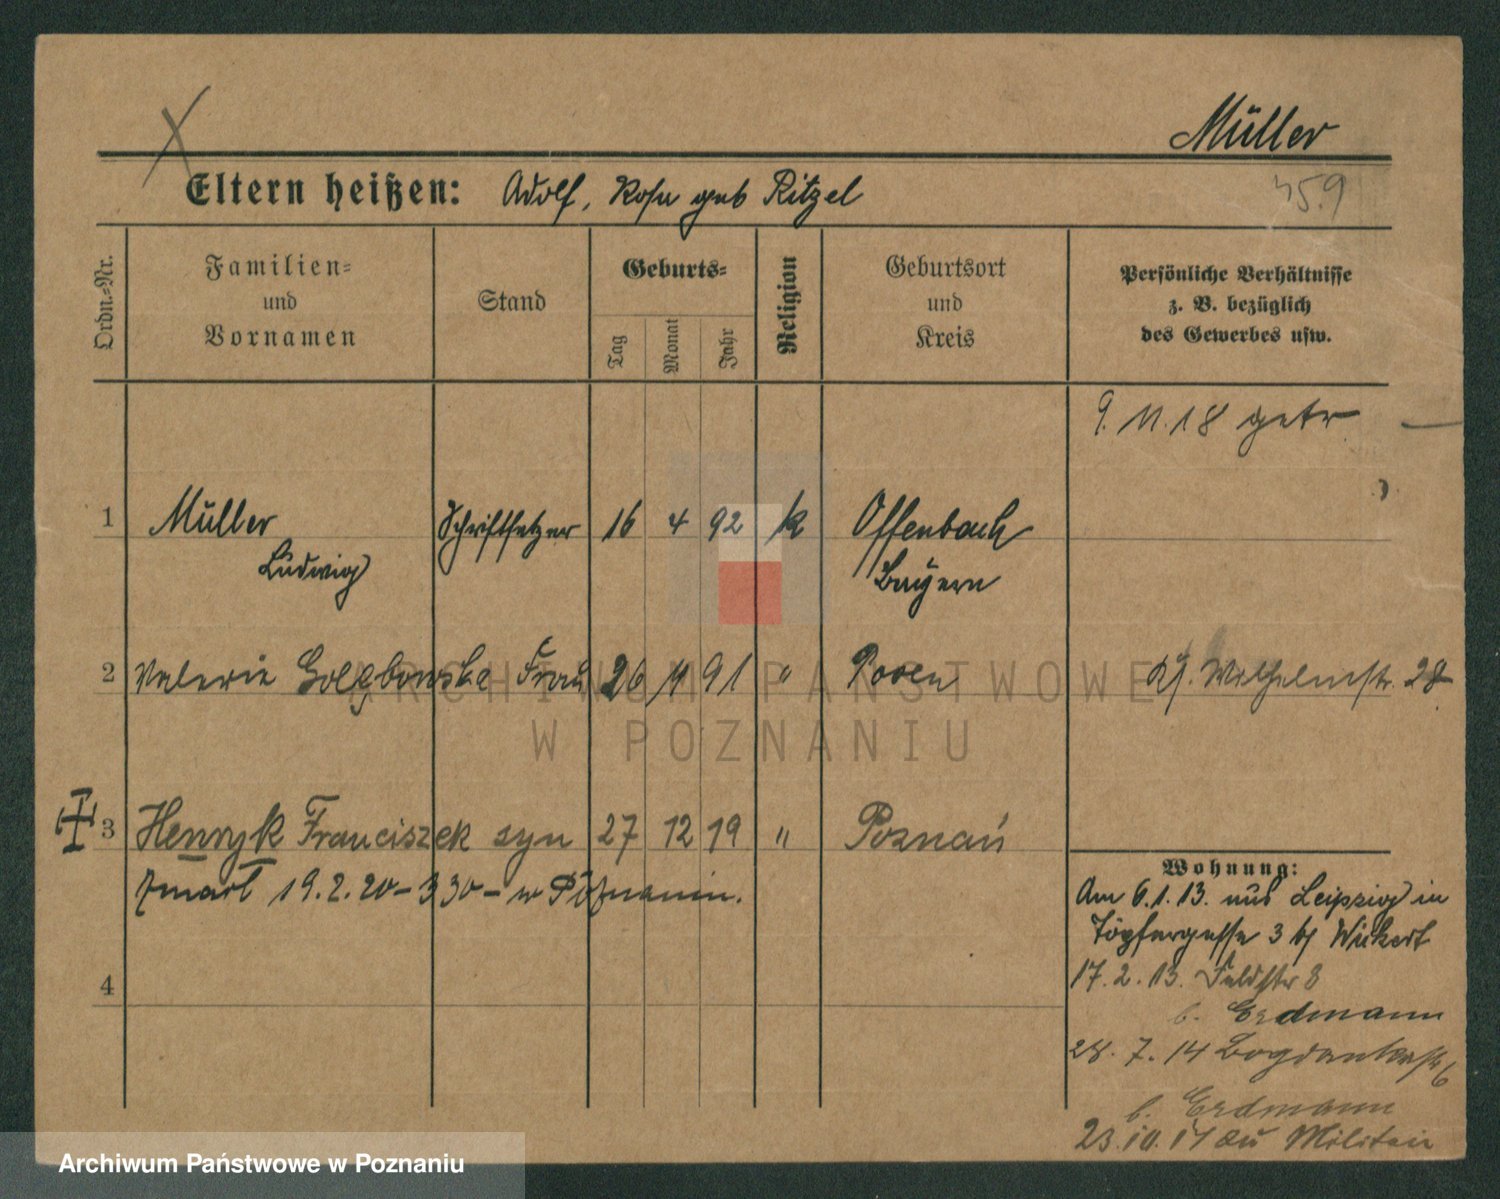 Müller
Eltern heißen: Adolf, Rosa geb Ritzel
45.9
Ordn.-Nr.
Familien- und Vornamen
Stand
Geburts-
Tag
Monat
Jahr
Religion
Geburtsort und Kreis
Persönliche Verhältnisse z. B. bezüglich des Gewerbes usw.
9.11.18 getr
1 Müller Schriftsetzer 16 4 92 k Offenbach
Ludwig Bayern
2 Valerie Frau 26 11 91 " Posen Wilhelmstr. 28
3 Henryk Franciszek syn 27 12 19 " Poznań
Zmarł 19.2.20 - 330 - w Poznaniu.
4
Wohnung:
Am 6.1.13. aus Leipzig in
Töpfergasse 3 bj Wickert
17.2.13. Feldstr 8
b. Erdmann
28.7.14 Bogdankastr 6
b. Erdmann
23.10.14 zu Militair
ARCHIWUM PAŃSTWOWE
W POZNANIU
Archiwum Państwowe w Poznaniu